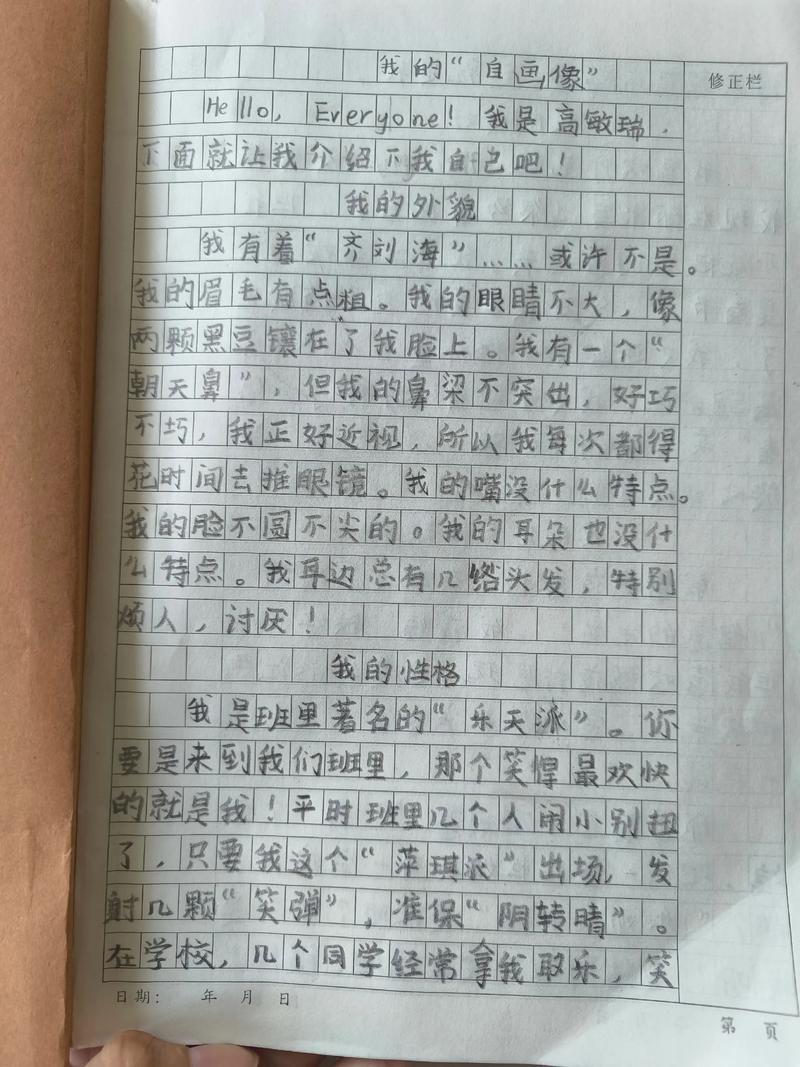 我的“自画像”
修正栏
Hello, Everyone! 我是高敏瑞，
下面就让我介绍下我自己吧！
我的外貌
我有着“齐刘海”……或许不是。
我的眉毛有点粗。我的眼睛不大，像
两颗黑豆镶在了我脸上。我有一个“
朝天鼻”，但我的鼻梁不突出，好巧
不巧，我正好近视，所以我每次都得
花时间去推眼镜。我的嘴没什么特点。
我的脸不圆不尖的。我的耳朵也没什
么特点。我耳边总有几绺头发，特别
烦人，讨厌！
我的性格
我是班里著名的“乐天派”。你
要是来到我们班里，那个笑得最欢快
的就是我！平时班里几个人闹小别扭
了，只要我这个“萍琪派”出场，发
射几颗“笑弹”，准保“阴转晴”。
在学校，几个同学经常拿我取乐，笑
日期： 年 月 日
第 页